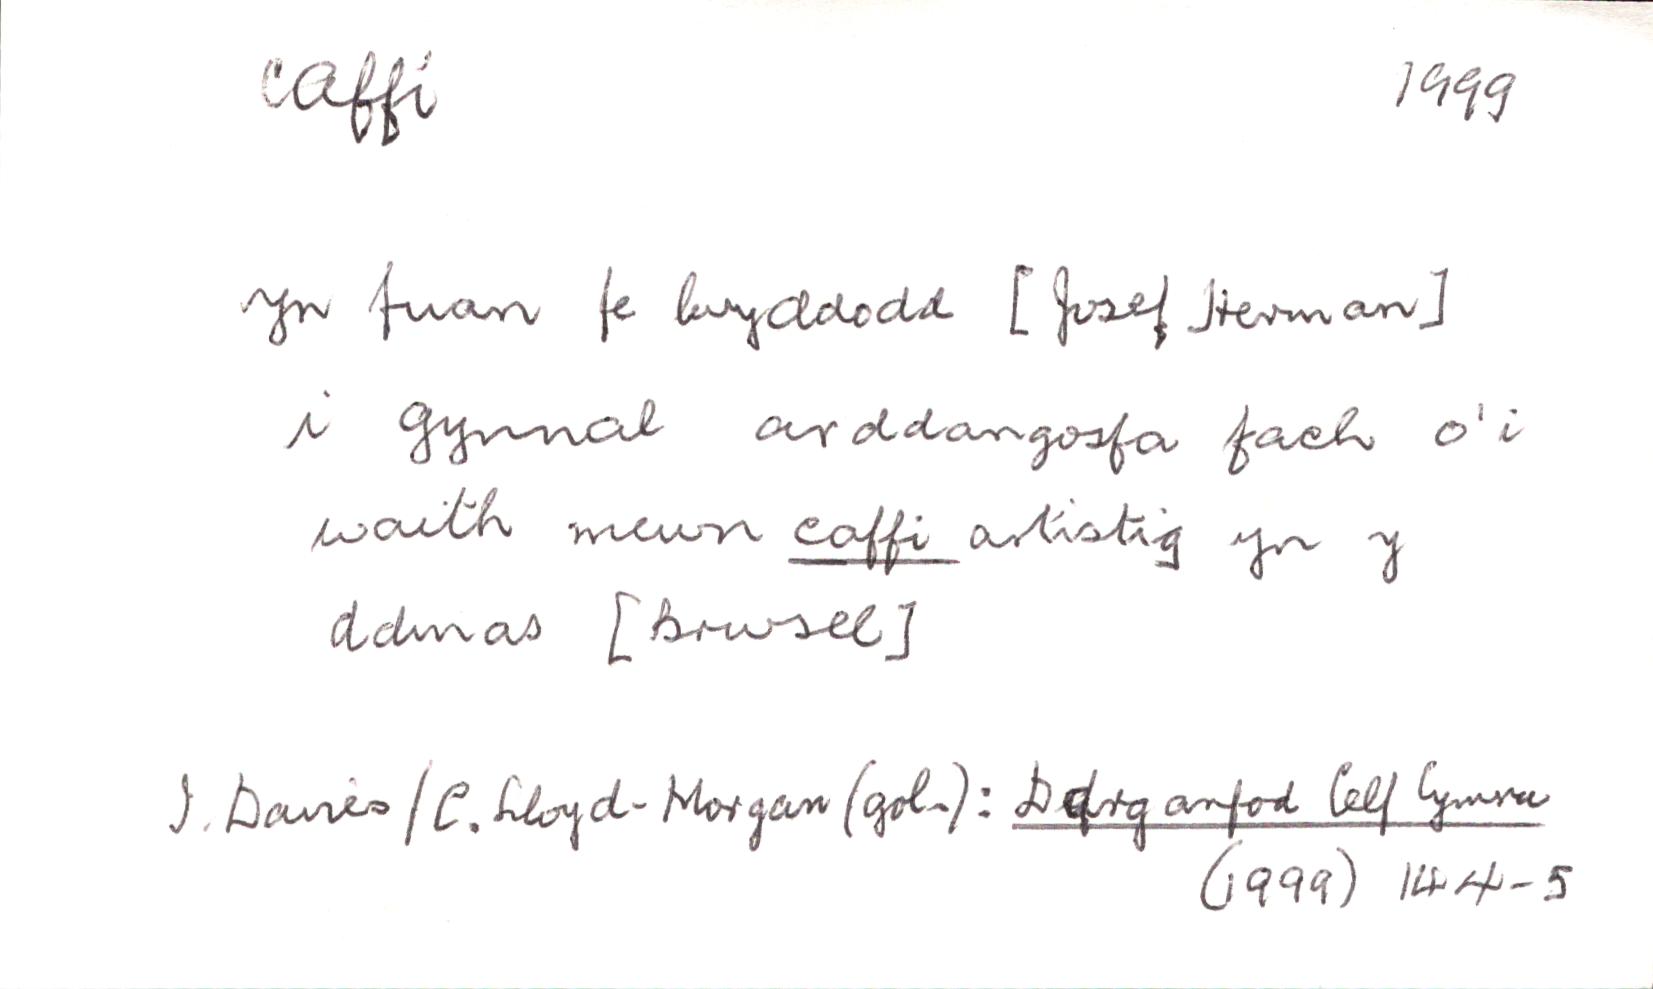 caffi 1999
yn fuan fe lwyddodd [Josef Herman]
i gynnal arddangosfa fach o'i
waith mewn caffi artistig yn y
ddinas [Brwsel]
I. Davies / C. Lloyd-Morgan (gol.): Darganfod Celf Cymru
(1999) 144-5